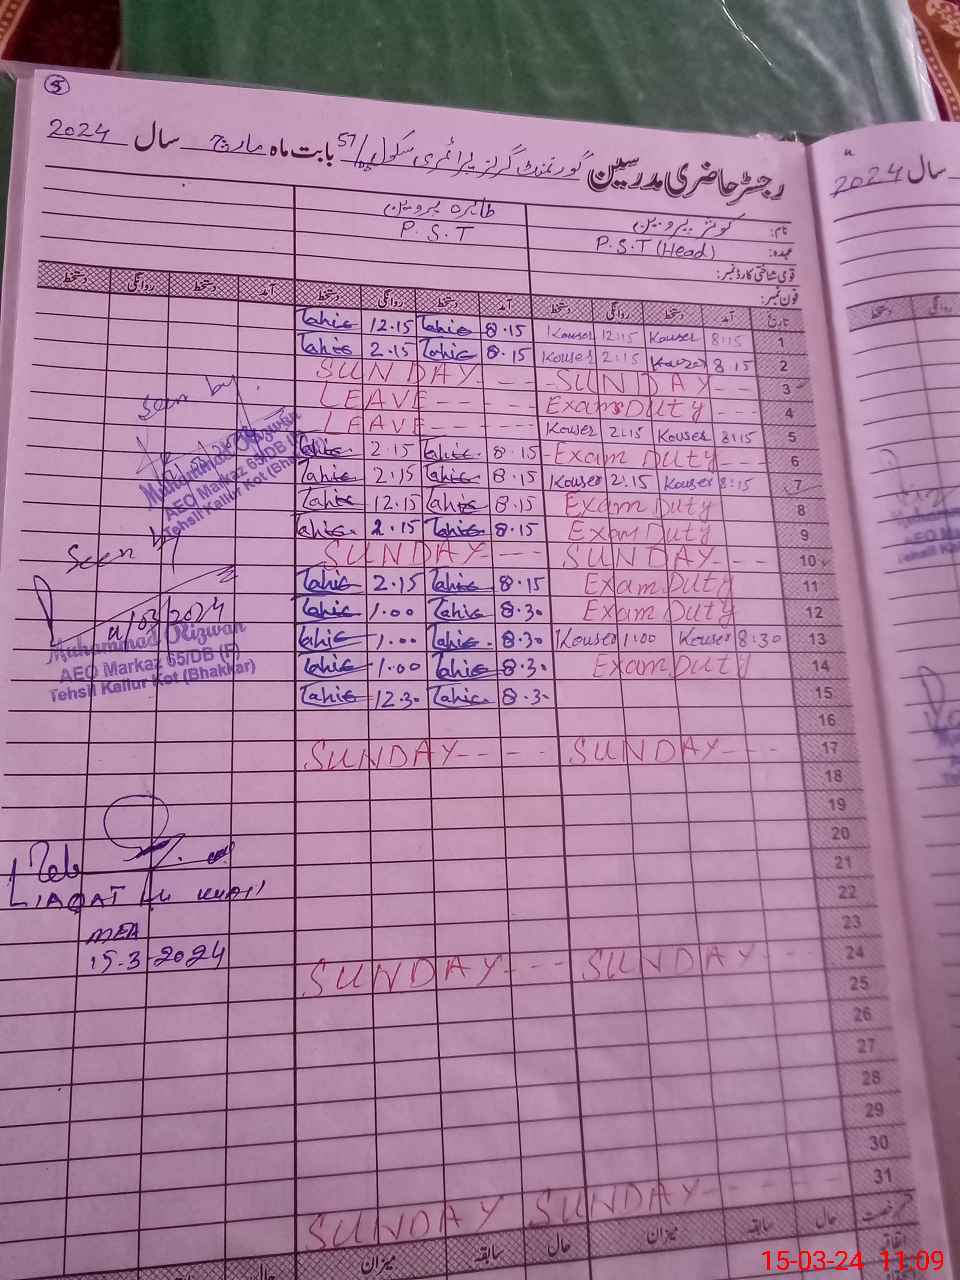 5
رجسٹر حاضری مدرسین گورنمنٹ گرلز پرائمری سکول 57/DB بابت ماہ مارچ سال 2024
نام: کوثر پروین طاہرہ پروین
عہدہ: P.S.T (Head) P.S.T
قومی شناختی کارڈ نمبر:
فون نمبر:
تاریخ آمد دستخط روانگی دستخط آمد دستخط روانگی دستخط آمد دستخط روانگی دستخط
Tahir 12.15 Tahir 8.15 Kouser 12:15 Kouser 8:15 1
Tahir 2.15 Tahir 8.15 Kouser 2:15 Kouser 8.15 2
SUNDAY --- SUNDAY -- 3
LEAVE ---- Exam Duty 4
LEAVE ---- Kouser 2:15 Kouser 8:15 5
Tahir 2.15 Tahir 8.15 Exam Duty --- 6
Tahir 2.15 Tahir 8.15 Kouser 2:15 Kouser 8:15 7
Tahir 12.15 Tahir 8.15 Exam Duty 8
Tahir 2.15 Tahir 8.15 Exam Duty 9
SUNDAY --- SUNDAY -- 10
Tahir 2.15 Tahir 8.15 Exam Duty 11
Tahir 1.00 Tahir 8.30 Exam Duty 12
Tahir 1.00 Tahir 8.30 Kouser 1:00 Kouser 8:30 13
Tahir 1.00 Tahir 8.30 Exam Duty 14
Tahir 12.30 Tahir 8.30 15
16
SUNDAY ---- SUNDAY --- 17
18
19
20
21
22
23
SUNDAY --- SUNDAY --- 24
25
26
27
28
29
30
SUNDAY SUNDAY ----- 31
رخصت حال سابقہ میزان حال سابقہ میزان حال
اتفاقیہ
Seen by
Muhammad Rizwan
AEO Markaz 65/DB
Tehsil Kallur Kot (Bhakkar)
Seen by
11/03/2024
Muhammad Rizwan
AEO Markaz 65/DB (F)
Tehsil Kallur Kot (Bhakkar)
LIAQAT Ali KHAN
MEA
15-3-2024
سال 2024
روانگی دستخط
15-03-24 11:09